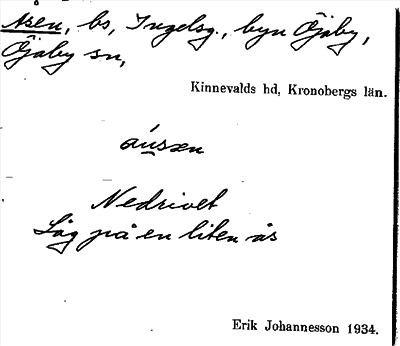 Åsen, bs, Ingelsg., byn Öjaby,
Öjaby sn,
Kinnevalds hd, Kronobergs län.
áusen
Nedrivet
Låg på en liten ås
Erik Johannesson 1934.